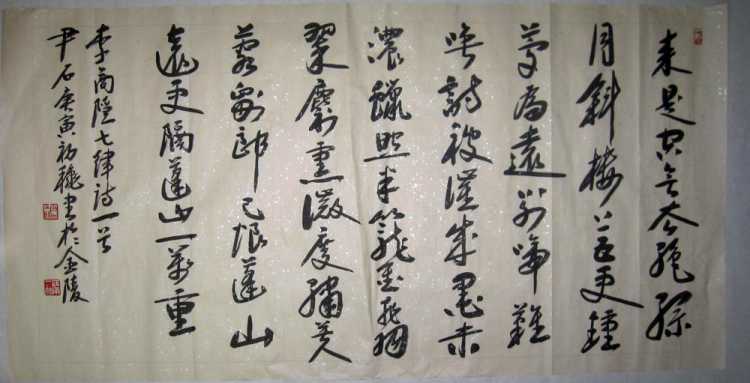 來是空言去絕踪
月斜樓上五更鐘
夢為遠別啼難
喚詩被催成墨未
濃蠟照半籠金翡
翠麝熏微度繡芙
蓉劉郎已恨蓬山
遠更隔蓬山一萬重
李商隱七律诗一首
尹石庚寅初秋書於金陵